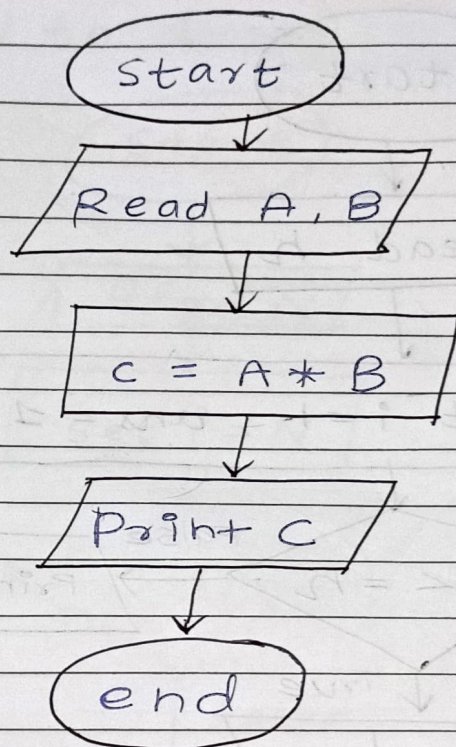 start
Read A, B
c = A * B
Print C
end